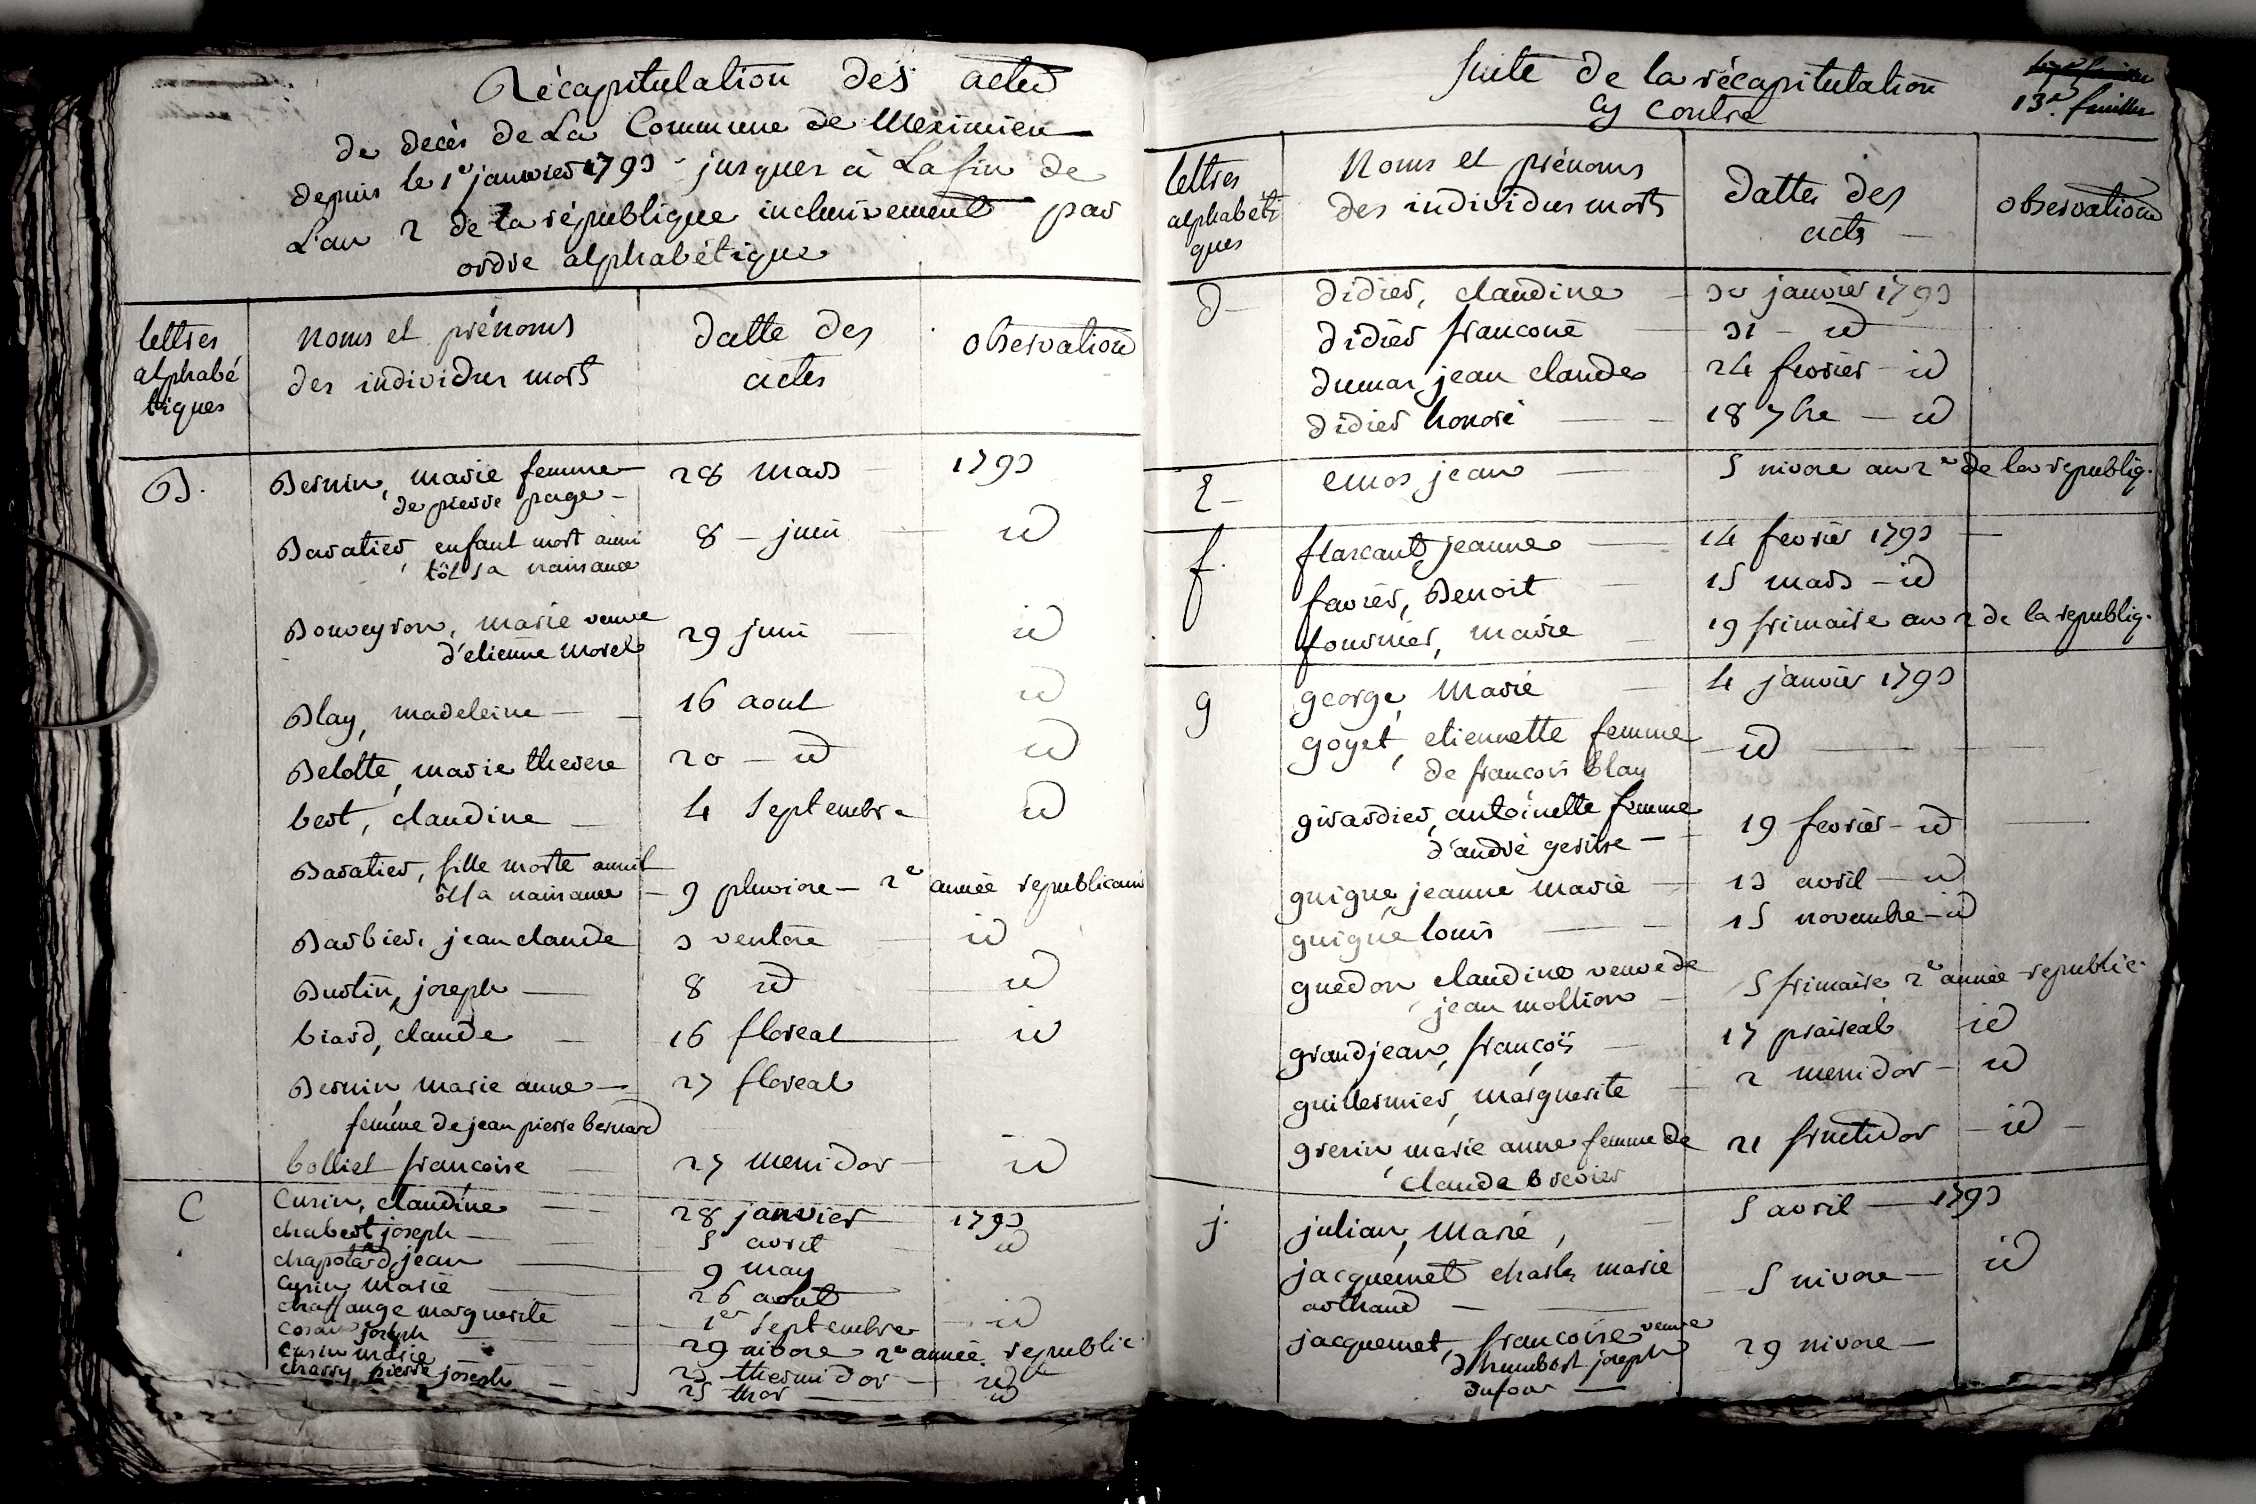 Récapitulation des actes
de decès de La Commune de Meximieu
depuis le 1er janvier 1793 - jusques à La fin de
L'an 2 de la république inclusivement par
ordre alphabétique
lettres alphabé tiques
noms et prénoms des individus mort
datte des actes
observation
B.
Bernin, marie femme de pierre page - 28 mars - 1793
Baratier, enfant mort aussi tôt sa naissance 8 - juin - id
Bouveyron, marie veuve d'etienne Morel 29 juin - id
Blay, madeleine - 16 aout id
Belotte, marie therese 20 - id id
bert, claudine - 4 septembre id
Baratier, fille morte aussit ôt sa naissance - 9 pluviose - 2e année republicain
Barbier, jean claude 3 ventose - id
Bustin, joseph - 8 id - id
biard, claude - 16 floreal - id
Bernin marie anne - 27 floreal
femme de jean pierre bernard
bolliet francoise - 27 messidor - id
C
Cusin, claudine - 28 janvier - 1793
chabert joseph - 5 avril - id
chapotard, jean - 9 may
Cusin marie - 26 aout
chaffange marguerite - 1er septembre - id
joseph - 29 nivose 2e année republic
Cusin marie - 23 thermidor - id
charry pierre joseph - 25 ther - id
Suite de la récapitulation
Cy Contre
13e feuillet
lettres alphabéti ques
Noms et prénoms des individus morts
datte des acts -
observation
d -
didier, claudine - 30 janvier 1793
didier francoise - 31 - id
dumas, jean claude 24 fevrier - id
didier honoré - 18 7bre - id
E -
emos jean - 5 nivose an 2e de la republiq.
f.
flascant, jeanne - 14 fevrier 1793 -
favier, Benoit - 15 mars - id
fournier, marie - 19 frimaire an 2 de la republiq.
g
george, Marie - 4 janvier 1793
goyet, etiennette femme de francois blay - id -
girardier, antoinette femme d'andré gerisse - 19 fevrier - id -
guigue, jeanne marie - 13 avril - id
guigue louis - 15 novembre - id
guedon claudine veuve de jean mollion - 5 frimaire 2e année republic.
grandjean, françois - 17 praireal id
guillermier, marguerite - 2 messidor - id
gresin, marie anne femme de claude brevier 21 fructidor - id -
j.
julian, Marie, - 5 avril - 1793
jacquemet charles marie arthaud - 5 nivose - id
jacquemet, francoise veuve d'humbert joseph dufour - 29 nivose -